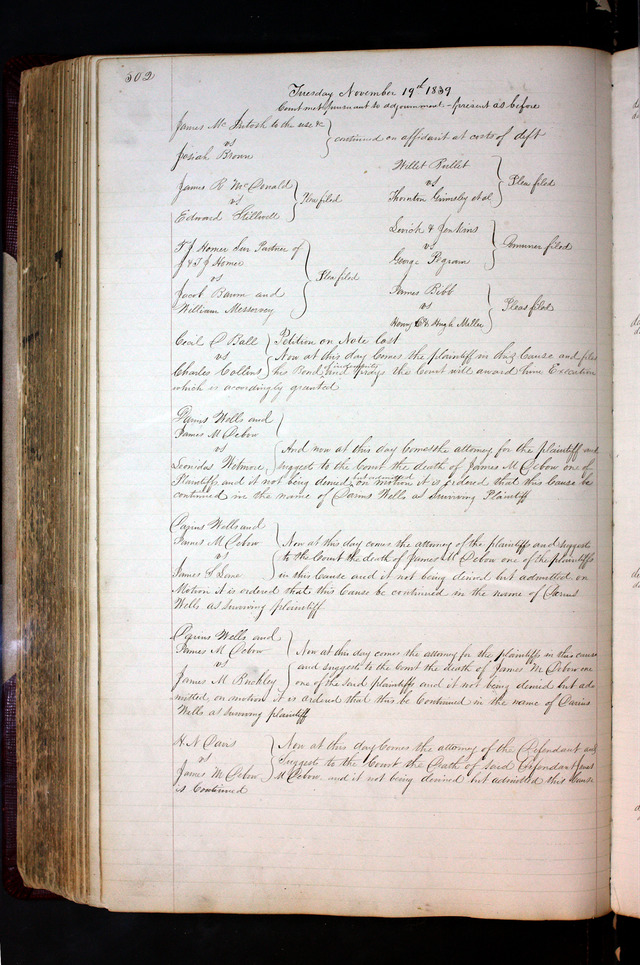 302
Tuesday November 19th 1839
Court met pursuant to adjournment - present as before
James McIntosh to the use &c
vs
Josiah Brown
continued on affidavit at costs of deft
James R McDonald
vs
Edward Stillwell
Plea filed
Willet Bullet
vs
Thornton Grimsley et al
Plea filed
T J Homer Sur Partner of
J & T J Homer
vs
Jacob Baum and
William Messervey
Plea filed
& Jenkins
vs
George Pegram
filed
James Bibb
vs
Henry C & Hugh Miller
Pleas filed
Cecil C Ball
vs
Charles Collins
Petition on Note Cost
Now at this day Comes the plaintiff in this Cause and files
his Bond of indemnity and prays the Court will award him Execution
which is accordingly granted
Darius Wells and
James M Debow
vs
Leonidas Wetmore
And now at this day Comes the attorney for the plaintiff and
suggests to the Court the death of James M Debow one of
Plaintiffs and it not being denied but admitted on motion it is ordered that this Cause be
continued in the name of Darius Wells as surviving Plaintiff
Darius Wells and
James M Debow
vs
James S Lane
Now at this day comes the attorney of the plaintiffs and suggests
to the Court the death of James M Debow one of the plaintiffs
in this Cause and it not being denied but admitted on
Motion it is ordered that this Cause be continued in the name of Darius
Wells as surviving plaintiff
Darius Wells and
James M Debow
vs
James M Buckley
Now at this day comes the attorney for the plaintiffs in this cause
and suggests to the Court the death of James M Debow one
one of the said plaintiffs and it not being denied but ad-
mitted on motion it is ordered that this be Continued in the name of Darius
Wells as surviving plaintiff
H. N Davis
vs
James M Debow
Now at this day Comes the attorney of the Defendant and
Suggests to the Court the Death of said Defendant James
M Debow and it not being denied but admitted this Cause
is Continued